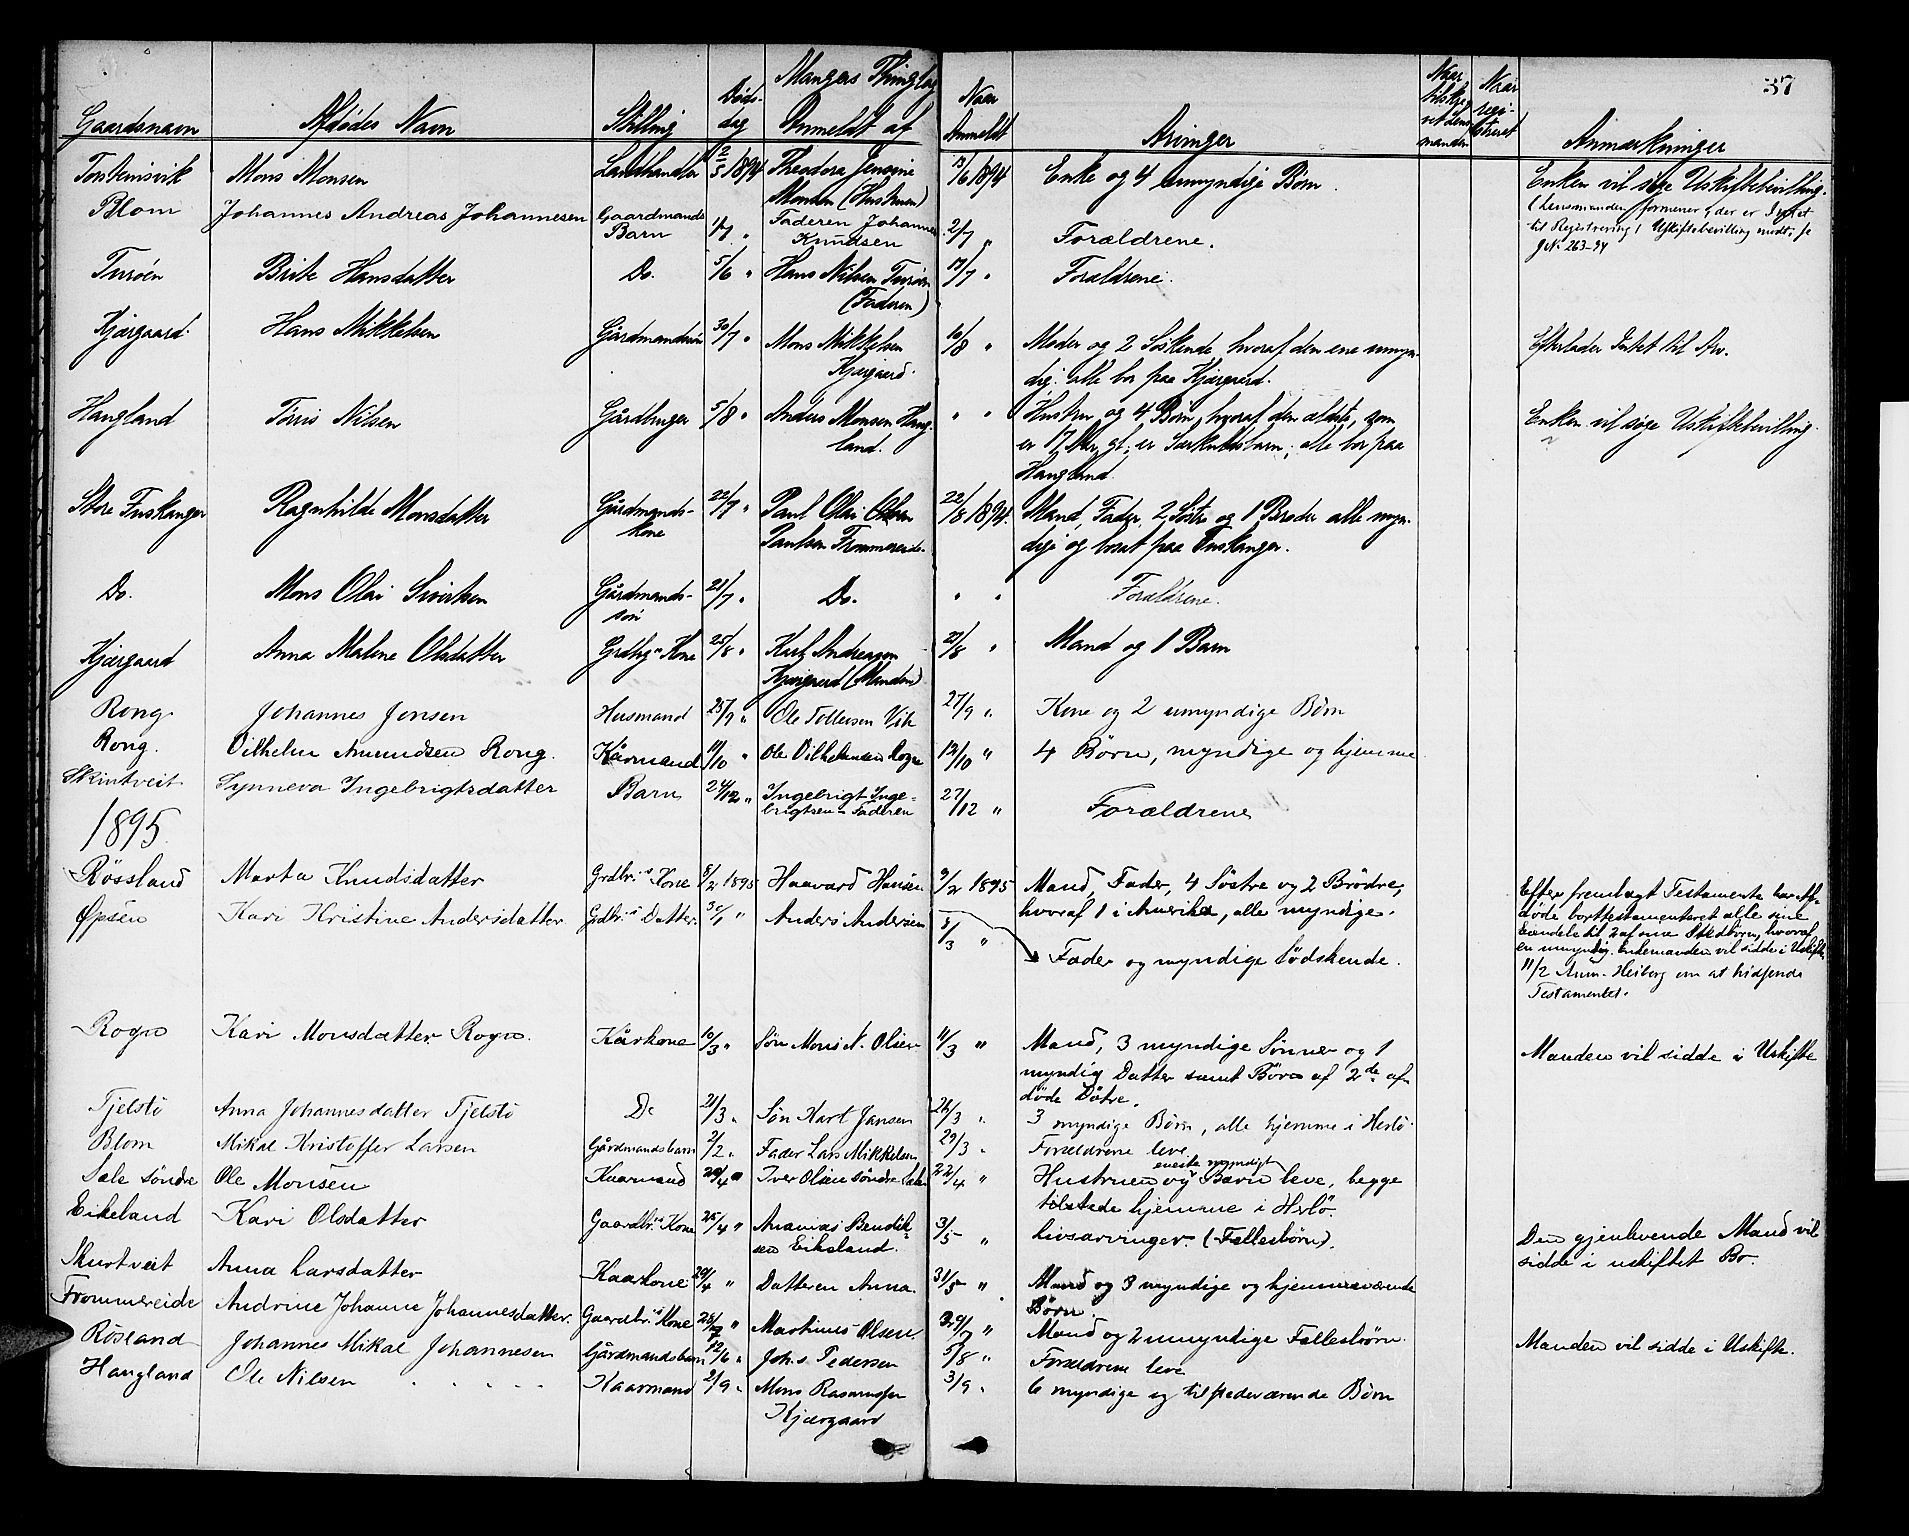 Mangers Thinglag
37
Gaardsnavn Afdødes Navn Stilling Døds- dag Anmeldt af Naar Anmeldt Arvinger Naar registreret Anmærkninger
Mons Monsen Landhandler 2/5 1894 Theodora Jensine 1894 Enke og 4 umyndige Børn. Enken vil søge Uskiftebevilling.
Monsen (Hustruen) (Lensmanden formener, der er Intet
Blom Johannes Andreas Johannesen Gaardmands Faderen Johannes 2/7 " Forældrene. til Registrering) Uskiftebevilling
Barn 1/7 " Knudsen J.N. 263-94
Turøen Brite Hansdatter Do. 5/6 " Hans Nilsen Turøen 17/7 " Forældrene.
(Faderen)
Kjærgaard Hans Mikkelsen Gårdmandssøn 30/7 " Mons Mikkelsen 10/8 " Moder og 2 Søskende, hvoraf den ene umyn- Efterlader Intet til Arv.
Kjærgaard. dig. alle bor paa Kjærgaard.
Hangland Nilsen Gårdbruger 5/8 " Anders Monsen Hang- " " Hustru og 4 Børn, hvoraf den ældste, som Enken vil søge Uskiftebevilling.
land. er 17 Aar gl. er Særkulsbarn, alle bor paa
Hangland.
Store Fuskanger Ragnhilde Monsdatter Gårdmands- 22/7 " Paul Olai Olsen 22/8 1894. Mand, Fader, 2 Søstre og 1 Broder alle myn-
kone Paulsen Frommereide. dige og bosat paa Fuskanger.
Do. Mons Olai Sivertsen Gårdmands- 21/7 " Do. " " Forældrene.
søn
Kjærgaard Anna Malene Olsdatter Grdbrgs Kone 25/8 " Karl Andreasen 27/8 " Mand og 1 Barn
Kjærgaard (Manden)
Rong Johannes Jensen Husmand 25/9 " Ole Tollevsen Vik 27/9 " Kone og 2 umyndige Børn
Rong. Vilhelm Amundsen Rong. Kårmand 11/10 " Ole Vilhelmsen Rogn 13/10 " 4 Børn, myndige og hjemme
Skintveit Synneva Ingebrigtsdatter Barn 24/12 " Ingebrigt Inge- 27/12 " Forældrene
brigtsen - Faderen
1895
Røssland Marta Knudsdatter Grdbr.s Kone 8/2 1895 Haavard Hansen 9/2 1895 Mand, Fader, 4 Søstre og 2 Brødre, Efter fremlagt Testamente har Af-
hvoraf 1 i Amerika, alle myndige. døde borttestamenteret alle sine
Øpsen Kari Kristine Andersdatter Grdbr.s Datter. 30/1 " Anders Andersen 8/3 " Fader og myndige Södskende. Eiendele til 2 af sine Stedbörn, hvoraf
en umyndig. Enkemanden vil sidde i Uskifte,
11/2 Anm. Heiberg om at hidsende
Testamentet.
Rogn Kari Monsdatter Rogn. Kårkone 10/3 " Søn Mons N. Olsen 11/3 " Mand, 3 myndige Sønner og 1 Manden vil sidde i Uskifte
myndig Datter samt Børn af 2de af-
døde Døtre.
Tjelstö Anna Johannesdatter Tjelstö Do 21/3 " Søn Kart Jansen 26/3 " 3 myndige Børn, alle hjemme i Herlö.
Blom Mikal Kristoffer Larsen Gårdmandsbarn 2/2 " Fader Lars Mikkelsen 29/3 " Forældrene leve.
Sæle söndre Ole Monsen Kaarmand 20/4 " Iver Olsen söndre Sæle 22/4 " Hustruen og eneste myndigt Barn leve, begge
tilstede hjemme i Herlö.
Eikeland Kari Olsdatter Gaardbr.s Kone 25/4 " Ananias Bendik- 3/5 " Livsarvinger. (Fællesbörn). Den gjenlevende Mand vil
sen Eikeland. sidde i uskiftet Bo.
Skurtveit Anna Larsdatter Kaarkone 29/4 " Datteren Anna. 31/5 " Mand og 3 myndige og hjemmeværende
Børn.
Frommereide Andrine Johanne Johannesdatter. Gaardbr.s Kone 28/7 " Martinus Olsen. 29/7 " Mand og 2 umyndige Fællesbørn. Manden vil sidde i Uskifte.
Røsland Johannes Mikal Johannesen Gårdmandsbarn 12/6 " Joh.s. Pedersen 5/8 " Forældrene leve
Hangland Ole Nilsen Kaarmand 2/9 " Mons Rasmussen 3/9 " 6 myndige og tilstedeværende Børn
Kjærgaard